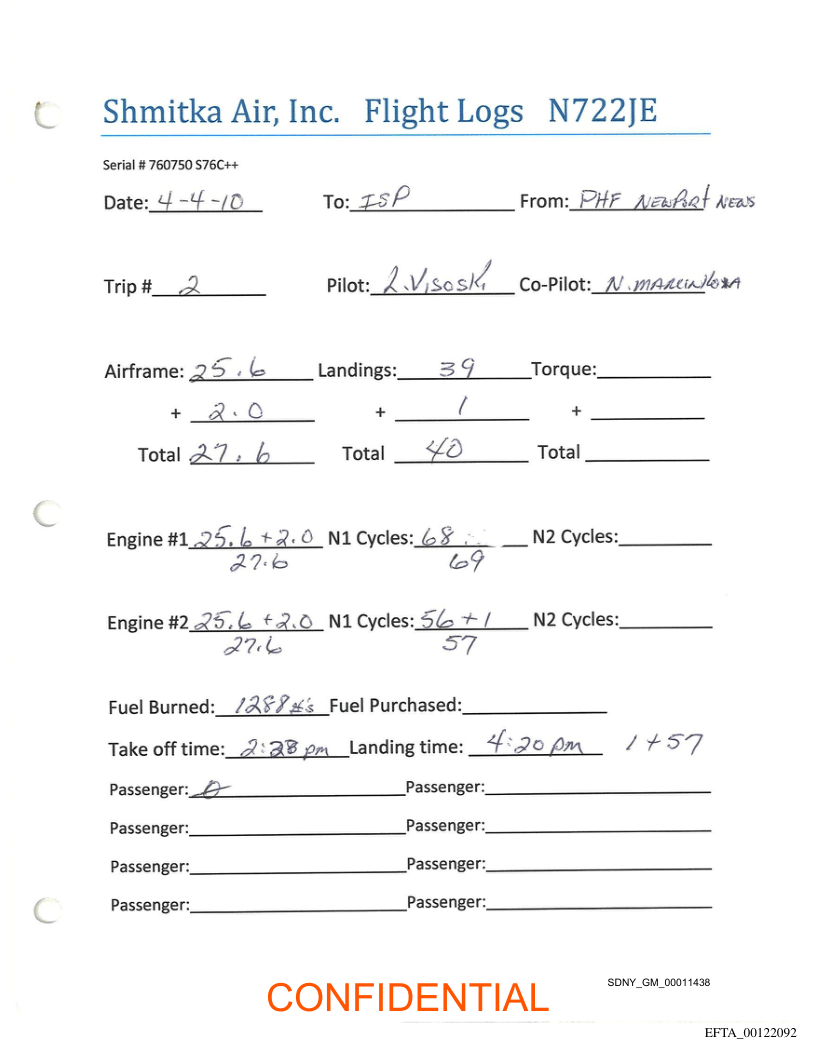 Shmitka Air, Inc. Flight Logs N722JE
Serial # 760750 S76C++
Date: 4-4-10 To: ISP From: PHF NEWPORT NEWS
Trip # 2 Pilot: L.VISOSKI Co-Pilot: N.MARCINKOVA
Airframe: 25.6 Landings: 39 Torque:
+ 2.0 + 1 +
Total 27.6 Total 40 Total
Engine #1 25.6+2.0 N1 Cycles: 68 N2 Cycles:
27.6 69
Engine #2 25.6+2.0 N1 Cycles: 56+1 N2 Cycles:
27.6 57
Fuel Burned: 1288#'s Fuel Purchased:
Take off time: pm Landing time: 4:20 pm 1+57
Passenger: 0 Passenger:
Passenger: Passenger:
Passenger: Passenger:
Passenger: Passenger:
SDNY_GM_00011438
CONFIDENTIAL
EFTA_00122092